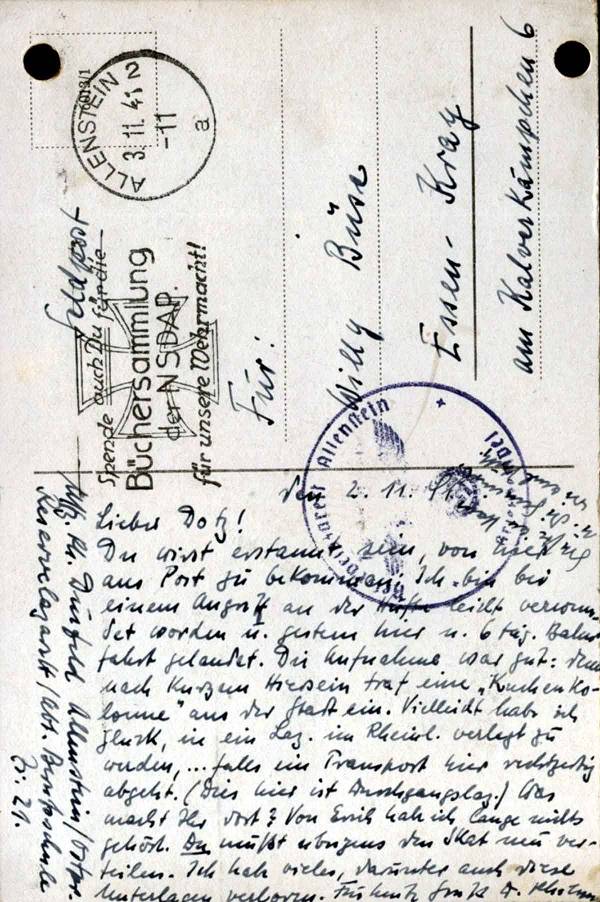 ALLENSTEIN 2
3.11.41
-11
a
Feldpost
Spende auch Du für die
Büchersammlung
der NSDAP.
für unsere Wehrmacht!
Für:
Willy Büse
Essen-Kray
am Kalverkämpchen 6
Allenstein
den 2.11.41.
Lieber Dotz!
Du wirst erstaunt sein, von hier
aus Post zu bekommen. Ich bin bei
einem Angriff an der Hüfte leicht verwun-
det worden u. gestern hier n. 6 täg. Bahn-
fahrt gelandet. Die Aufnahme war gut: denn
nach kurzem Hiersein traf eine „Kuchenko-
lonne" aus der Stadt ein. Vielleicht habe ich
Glück, in ein Laz. im Rheinl. verlegt zu
werden, ... falls ein Transport hier rechtzeitig
abgeht. (Dies hier ist Durchgangslaz.) Was
macht Ihr dort? Von Erich hab ich lange nichts
gehört. Du mußt übrigens den Skat neu ver-
teilen. Ich hab vieles, darunter auch diese
Unterlagen verloren.
Allenstein/Ostpr.
Reservelazarett/Abt. Berufsschule
Zi. 21.